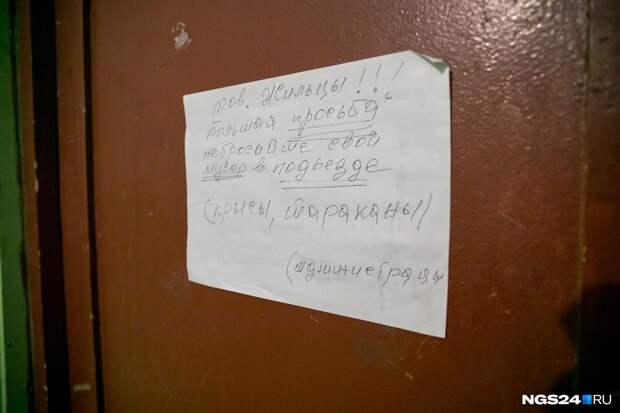 тов. Жильцы!!!
Большая просьба
небросайте свой
мусор в подьезде
(крысы, тараканы)
(администрация
NGS24.RU